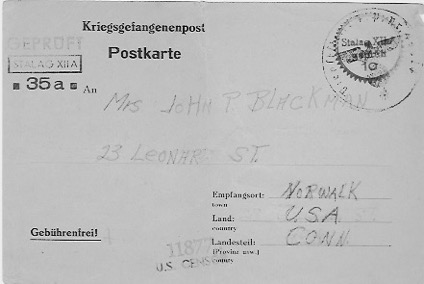 Kriegsgefangenenpost
GEPRÜFT
Postkarte
STALAG XII A
35a
An
Stalag XII
10
MRS JOHN P BLACKMAN
23 LEONARD ST.
Empfangsort: NORWALK
town
Land: USA
country
Landesteil: CONN
(Provinz usw.)
county
Gebührenfrei!
11877
U.S. CENS